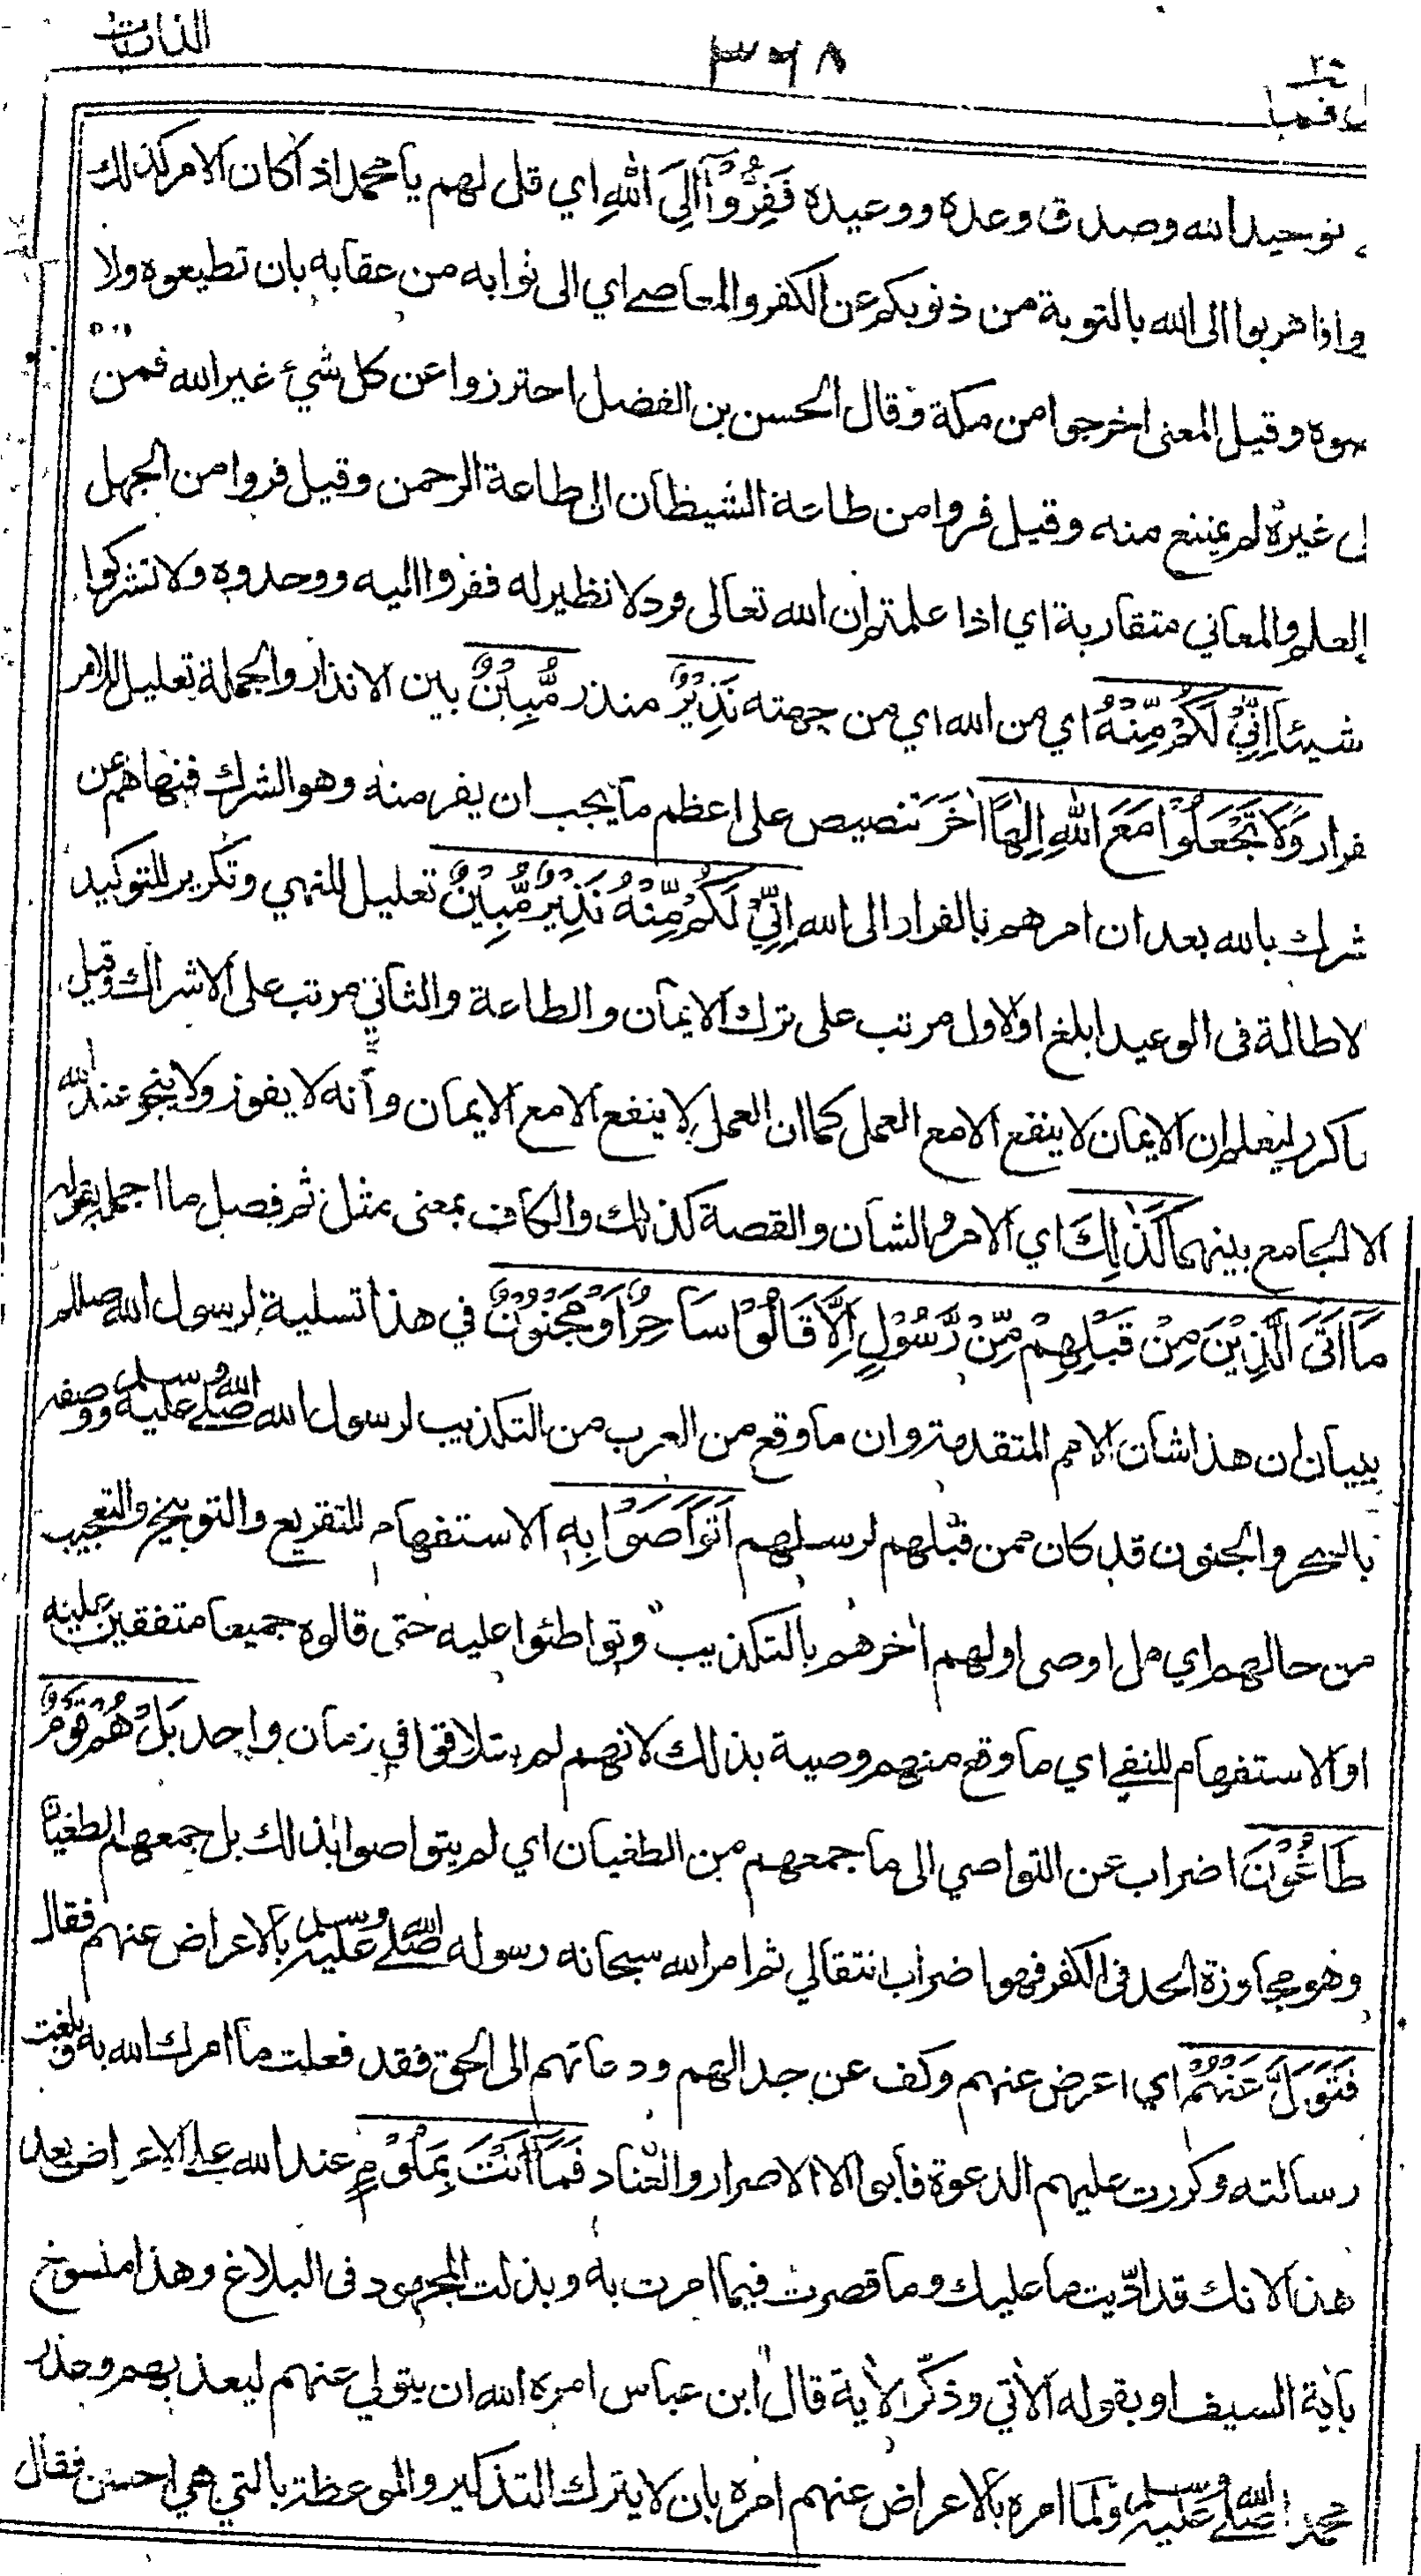 الذاريات
٣٦٨
توحيد الله وصدق وعده ووعيده فَفِرُّوْٓا اِلَى اللهِ اي قل لهم يا محمد اذا كان الامر كذلك
اهربوا الى الله بالتوبة من ذنوبكم عن الكفر والمعاصي اي الى ثوابه من عقابه بان تطيعوه ولا
وقيل المعنى اخرجوا من مكة وقال الحسن بن الفضل احترزوا عن كل شيء غير الله فمن
غيره لم يمتنع منه وقيل فروا من طاعة الشيطان الى طاعة الرحمن وقيل فروا من الجهل
العلم والمعاني متقاربة اي اذا علمتم ان الله تعالى فرد لا نظير له ففروا اليه ووحدوه ولا تشركوا
شيئا اِنِّيْ لَكُمْ مِّنْهُ اي من الله اي من جهته نَذِيْرٌ منذر مُّبِيْنٌ بين الانذار والجملة تعليل للامر
فرار وَلَا تَجْعَلُوْا مَعَ اللهِ اِلٰهًا اٰخَرَ تنصيص على اعظم ما يجب ان يفر منه وهو الشرك فنهاهم عن
شرك بالله بعد ان امرهم بالفرار الى الله اِنِّيْ لَكُمْ مِّنْهُ نَذِيْرٌ مُّبِيْنٌ تعليل للنهي وتكرير للتوكيد
لاطالة في الوعيد ابلغ او لاول مرتب على ترك الايمان والطاعة والثاني مرتب على الاشراك وقيل
كرر ليعلم ان الايمان لا ينفع الا مع العمل كما ان العمل لا ينفع الا مع الايمان وأنه لا يفوز ولا ينجو عند الله
الا الجامع بينهما كَذٰلِكَ اي الامر والشان والقصة كذلك والكاف بمعنى مثل ثم فصل ما اجمله بقوله
مَا اَتَى الَّذِيْنَ مِنْ قَبْلِهِمْ مِّنْ رَّسُوْلٍ اِلَّا قَالُوْا سَاحِرٌ اَوْ مَجْنُوْنٌ في هذا تسلية لرسول الله صللم
ببيان ان هذا شان الامم المتقدمة وان ما وقع من العرب من التكذيب لرسول الله صلى الله عليه وسلم ووصفه
بالسحر والجنون قد كان ممن قبلهم لرسلهم اَتَوَاصَوْا بِهٖ الاستفهام للتقريع والتوبيخ والتعجيب
من حالهم اي هل اوصى اولهم اخرهم بالتكذيب وتواطئوا عليه حتى قالوه جميعا متفقين عليه
او الاستفهام للنفي اي ما وقع منهم وصية بذلك لانهم لم يتلاقوا في زمان واحد بَلْ هُمْ قَوْمٌ
طَاغُوْنَ اضراب عن التواصي الى ما جمعهم من الطغيان اي لم يتواصوا بذلك بل جمعهم الطغيان
وهو مجاوزة الحد في الكفر فهو اضراب انتقالي ثم امر الله سبحانه رسوله صلى الله عليه وسلم بالاعراض عنهم فقال
فَتَوَلَّ عَنْهُمْ اي اعرض عنهم وكف عن جدالهم ودعائهم الى الحق فقد فعلت ما امرك الله به وبلغت
رسالته وكررت عليهم الدعوة فأبوا الا الاصرار والعناد فَمَآ اَنْتَ بِمَلُوْمٍ عند الله على الاعراض بعد
هذا لانك قد ادّيت ما عليك وما قصرت فيما امرت به وبذلت المجهود في البلاغ وهذا منسوخ
بأية السيف او بقوله الاتي وذكّر الأية قال ابن عباس امره الله ان يتولى عنهم ليعذبهم وعذر
محمدا صلى الله عليه وسلم ولما امره بالاعراض عنهم امره بان لا يترك التذكير والموعظة بالتي هي احسن فقال